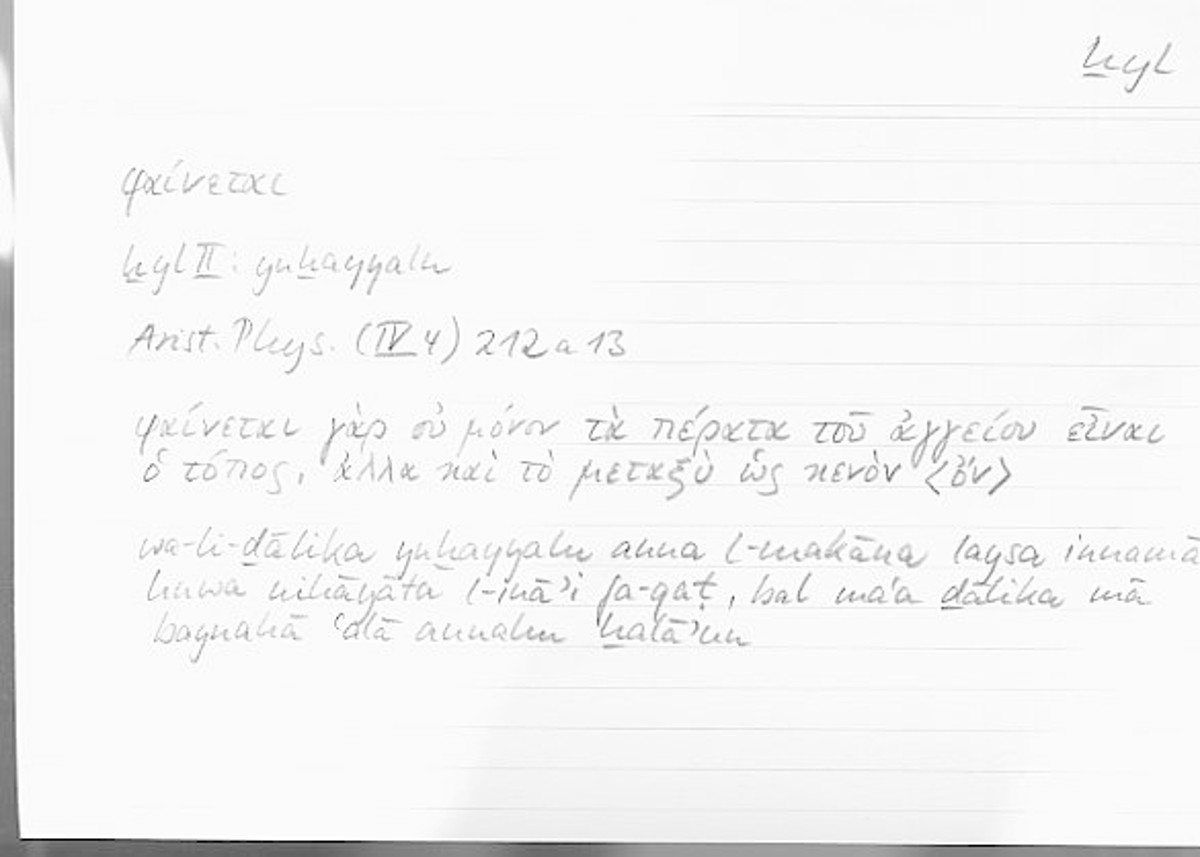 ẖyl
φαίνεται
ẖyl II: yuẖayyalu
Arist. Phys. (IV 4) 212 a 13
φαίνεται γὰρ οὐ μόνον τὰ πέρατα τοῦ ἀγγείου εἶναι
ὁ τόπος, ἀλλὰ καὶ τὸ μεταξὺ ὡς κενὸν <ὄν>
wa-li-ḏālika yuẖayyalu anna l-makāna laysa innamā
huwa nihāyātu l-inā’i fa-qaṭ, bal ma‘a ḏālika mā
baynahā ‘alā annahu ẖalā’un